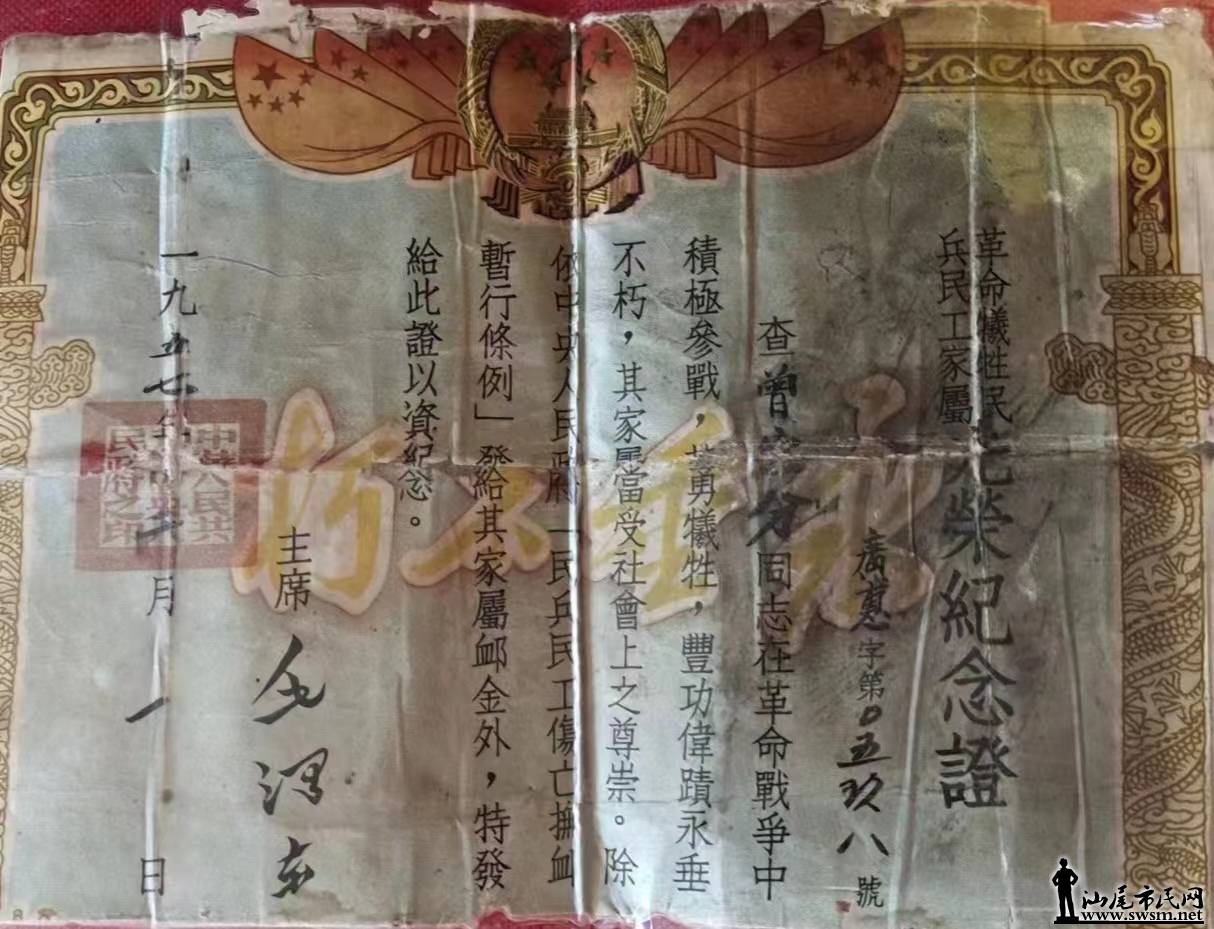 革命犧牲民兵民工家屬光榮紀念證
廣惠字第0五玖八號
查曾 分同志在革命戰爭中
積極參戰，英勇犧牲，豐功偉蹟永垂
不朽，其家屬當受社會上之尊崇。除
依中央人民政府「民兵民工傷亡撫卹
暫行條例」發給其家屬卹金外，特發
給此證以資紀念。
主席 毛澤东
一九五七年 月一日
永垂不朽
中華人民共
民 府之印
汕尾市民网
www.swsm.net